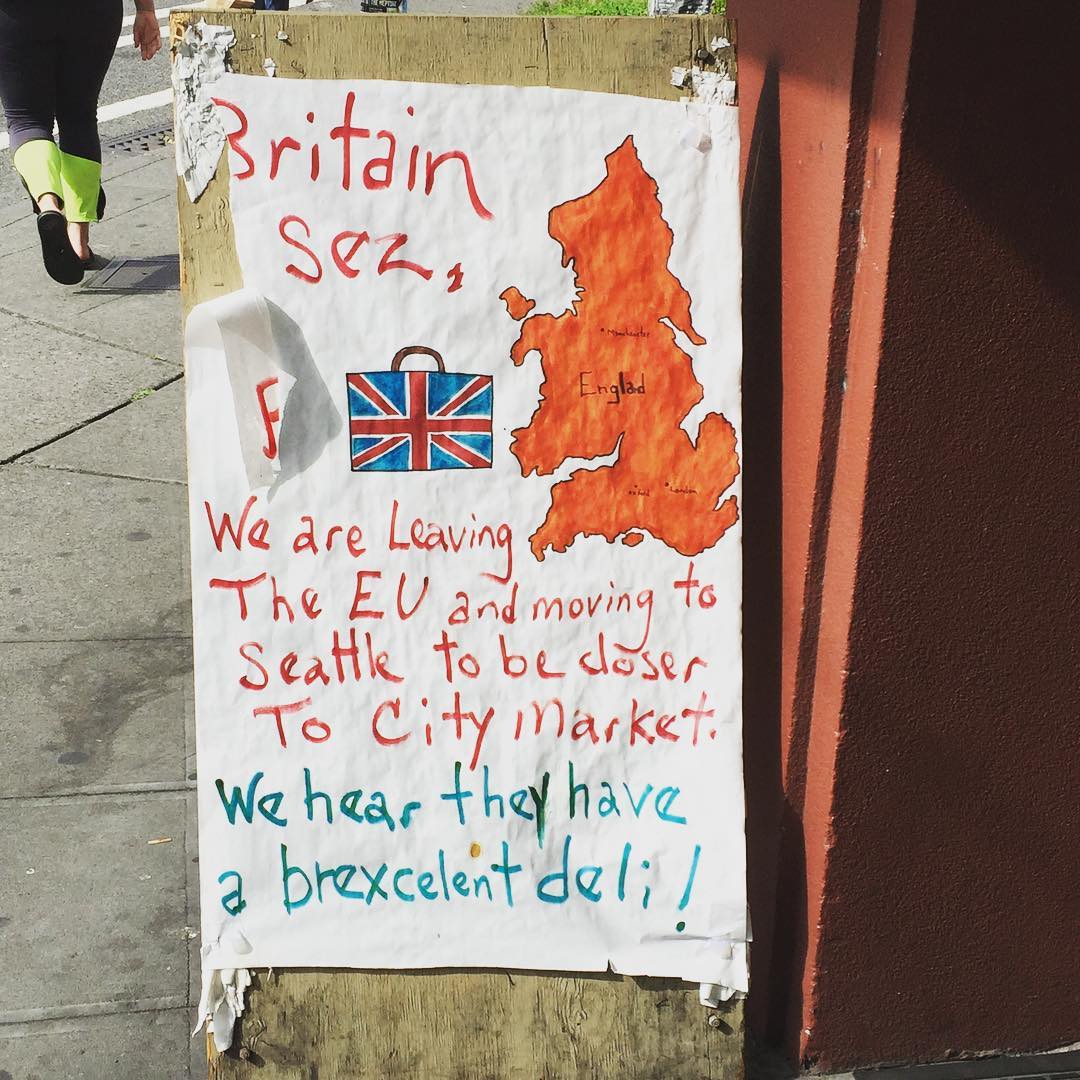 Britain
Sez,
Manchester
Englad
London
We are Leaving
The EU and moving to
Seattle to be closer
To City Market.
We hear they have
a brexcelent deli!